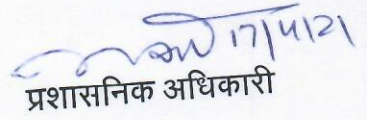 17/4/21
प्रशासनिक अधिकारी